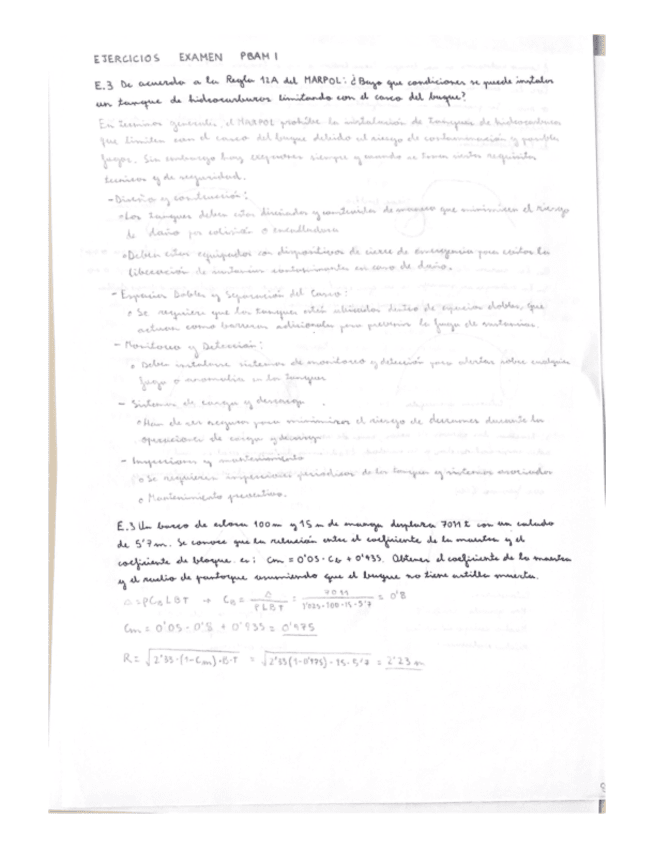 EJERCICIOS EXAMEN PBAM I
E.3 De acuerdo a la Regla 12A del MARPOL: ¿Bajo que condiciones se puede instalar
un tanque de hidrocarburos limitando con el casco del buque?
En terminos generales, el MARPOL prohíbe la instalación de tanques de hidrocarburos
que limiten con el casco del buque debido al riesgo de contaminación y posibles
fugas. Sin embargo hay excepciones siempre y cuando se tomen ciertos requisitos
tecnicos y de seguridad.
- Diseño y construcción:
• Los tanques deben estar diseñados y construidos de manera que minimicen el riesgo
de daño por colisión o encalladura
• Deben estar equipados con dispositivos de cierre de emergencia para evitar la
liberación de sustancias contaminantes en caso de daño.
- Espacios Dobles y Separación del Casco:
• Se requiere que los tanques estén ubicados dentro de espacios dobles, que
actuan como barreras adicionales para prevenir la fuga de sustancias.
- Monitoreo y Detección:
• Deben instalarse sistemas de monitoreo y detección para alertas sobre cualquier
fuga o anomalía en los tanques
- Sistemas de carga y descarga
• Han de ser seguros para minimizar el riesgo de derrames durante las
operaciones de carga y descarga
- Inspecciones y mantenimiento
o Se requieren inspecciones periodicas de los tanques y sistemas asociados
o Mantenimiento preventivo.
E.3 Un barco de eslora 100 m y 15 m de manga desplaza 7011 t con un calado
de 5'7 m. Se conoce que la relación entre el coeficiente de la maestra y el
coeficiente de bloque es: Cm = 0'05 · Cb + 0'935. Obtener el coeficiente de la maestra
y el radio de pantoque asumiendo que el buque no tiene astilla muerta.
Δ = ρ C_B L B T → C_B = Δ / ρ L B T = 7011 / 1'025 · 100 · 15 · 5'7 = 0'8
Cm = 0'05 · 0'8 + 0'935 = 0'975
R = √(2'33 · (1 - Cm) · B · T) = √(2'33 (1 - 0'975) · 15 · 5'7) = 2'23 m